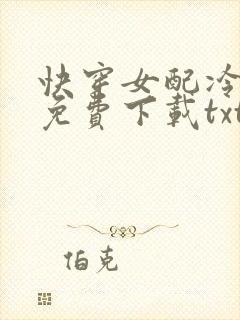 快穿女配冷
免費下載txt
伯克